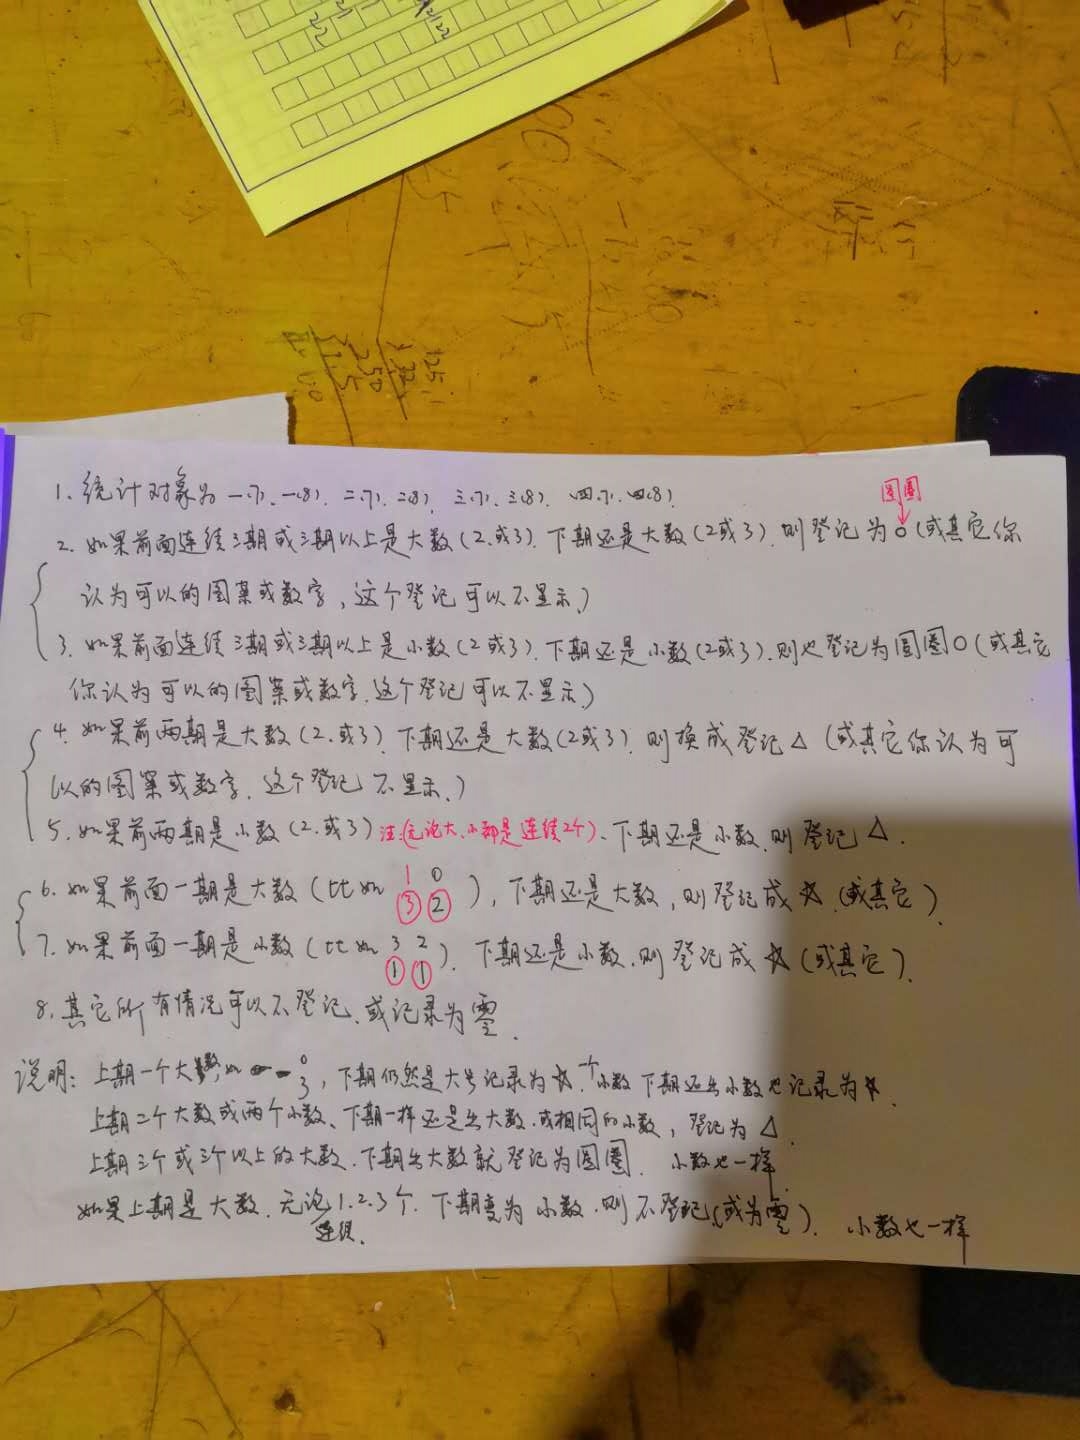 1. 统计对象为 一(7). 一(8). 二(7). 二(8). 三(7). 三(8). 四(7). 四(8).
圆圈
2. 如果前面连续三期或三期以上是大数(2.或3). 下期还是大数(2或3). 则登记为O(或其它你
认为可以的图案或数字, 这个登记可以不显示.)
3. 如果前面连续三期或三期以上是小数(2或3). 下期还是小数(2或3). 则也登记为圆圈O(或其它
你认为可以的图案或数字. 这个登记可以不显示)
4. 如果前两期是大数(2.或3). 下期还是大数(2或3). 则换成登记△ (或其它你认为可
以的图案或数字. 这个登记 不显示.)
5. 如果前两期是小数(2.或3) 注:(无论大.小都是连续2个). 下期还是小数. 则登记△.
1 0
6. 如果前面一期是大数(比如 ③ ② ), 下期还是大数, 则登记成☆.(或其它)
7. 如果前面一期是小数(比如 3 2
① ① ). 下期还是小数. 则登记成☆(或其它).
8. 其它所有情况可以不登记. 或记录为零.
说明: 上期一个大数, 如 0
3 , 下期仍然是大号记录为☆. 一个小数 下期还出小数也记录为☆.
上期二个大数或两个小数、下期一样还是出大数.或相同的小数, 登记为△.
上期三个或三个以上的大数. 下期出大数就登记为圆圈. 小数也一样.
如果上期是大数. 无论1.2.3个. 下期变为小数.则不登记(或为零). 小数也一样
连续.